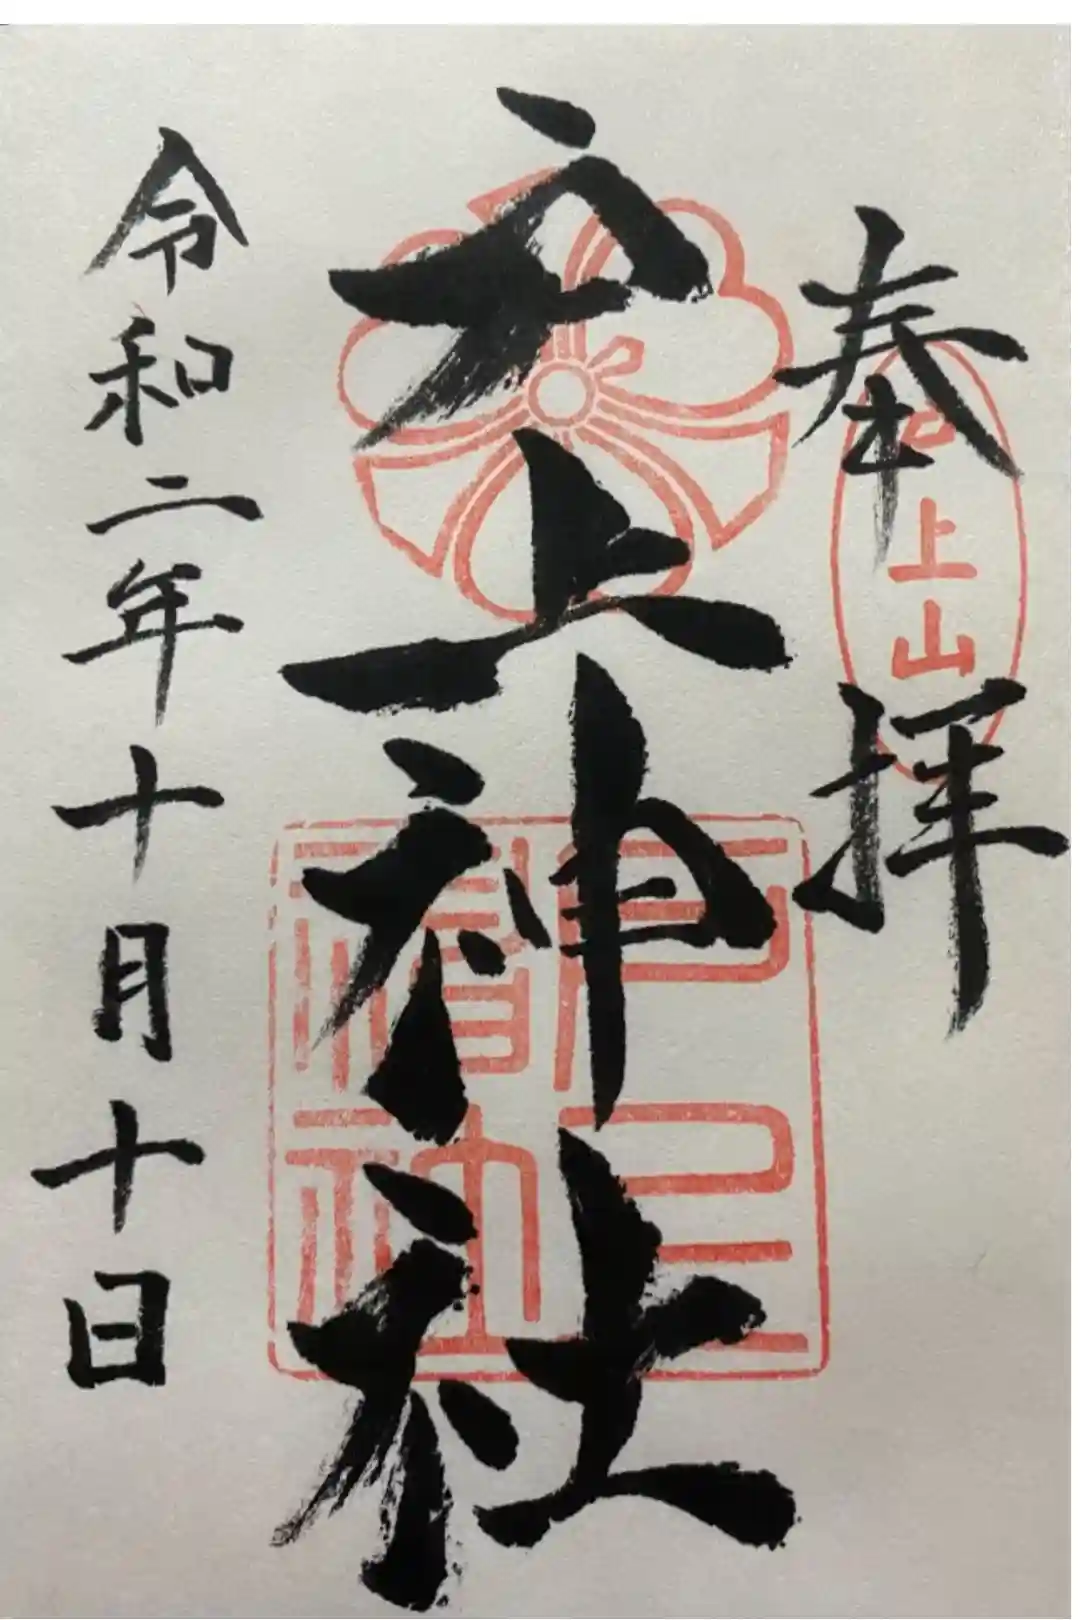 奉拝
上山
戸上神社
令和二年十月十日